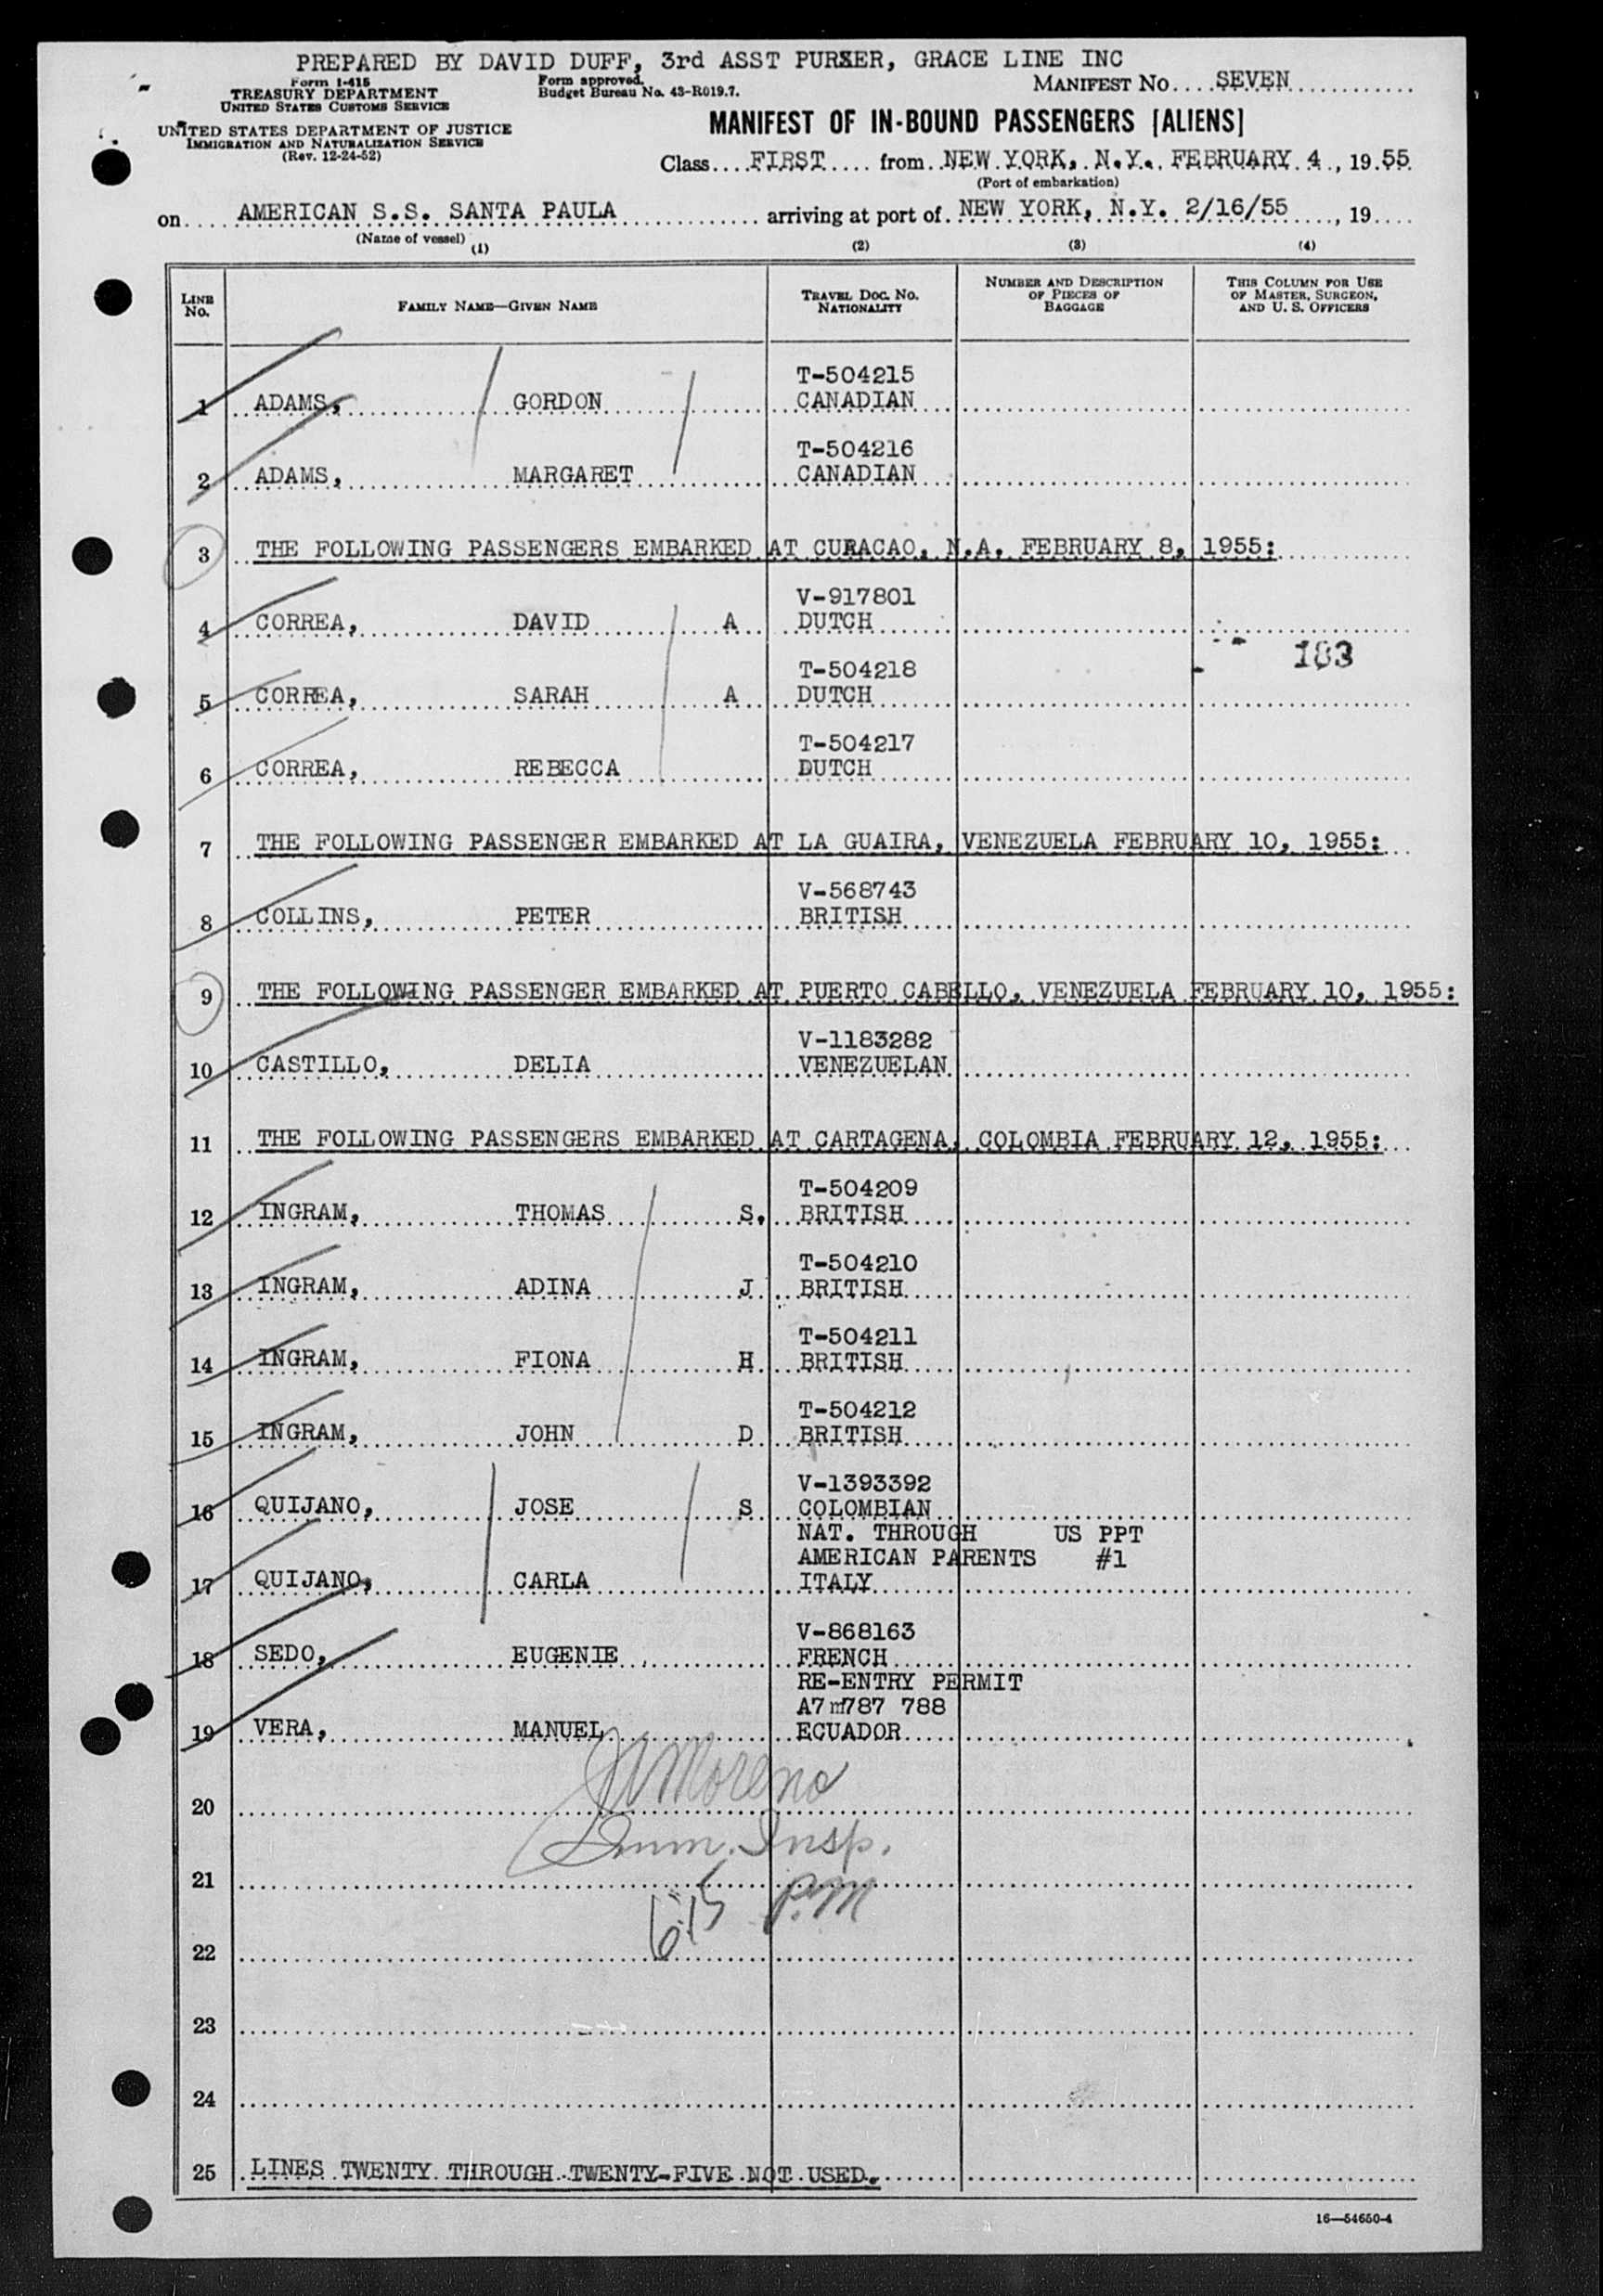 PREPARED BY DAVID DUFF, 3rd ASST PURSER, GRACE LINE INC
Form I-415
TREASURY DEPARTMENT
UNITED STATES CUSTOMS SERVICE
Form approved.
Budget Bureau No. 43-R019.7.
MANIFEST NO....SEVEN
UNITED STATES DEPARTMENT OF JUSTICE
IMMIGRATION AND NATURALIZATION SERVICE
(Rev. 12-24-52)
MANIFEST OF IN-BOUND PASSENGERS [ALIENS]
Class....FIRST.... from NEW YORK, N.Y. FEBRUARY 4, 1955
(Port of embarkation)
on.... AMERICAN S.S. SANTA PAULA .... arriving at port of NEW YORK, N.Y. 2/16/55, 19....
(Name of vessel)
(1) (2) (3) (4)
LINE NO. FAMILY NAME—GIVEN NAME TRAVEL DOC. NO. NATIONALITY NUMBER AND DESCRIPTION OF PIECES OF BAGGAGE THIS COLUMN FOR USE OF MASTER, SURGEON, AND U. S. OFFICERS
T-504215
1 ADAMS, GORDON CANADIAN
T-504216
2 ADAMS, MARGARET CANADIAN
3 THE FOLLOWING PASSENGERS EMBARKED AT CURACAO, N.A. FEBRUARY 8, 1955:
V-917801
4 CORREA, DAVID A DUTCH
183
T-504218
5 CORREA, SARAH A DUTCH
T-504217
6 CORREA, REBECCA DUTCH
7 THE FOLLOWING PASSENGER EMBARKED AT LA GUAIRA, VENEZUELA FEBRUARY 10, 1955:
V-568743
8 COLLINS, PETER BRITISH
9 THE FOLLOWING PASSENGER EMBARKED AT PUERTO CABELLO, VENEZUELA FEBRUARY 10, 1955:
V-1183282
10 CASTILLO, DELIA VENEZUELAN
11 THE FOLLOWING PASSENGERS EMBARKED AT CARTAGENA, COLOMBIA FEBRUARY 12, 1955:
T-504209
12 INGRAM, THOMAS S. BRITISH
T-504210
13 INGRAM, ADINA J BRITISH
T-504211
14 INGRAM, FIONA H BRITISH
T-504212
15 INGRAM, JOHN D BRITISH
V-1393392
16 QUIJANO, JOSE S COLOMBIAN
NAT. THROUGH US PPT
AMERICAN PARENTS #1
17 QUIJANO, CARLA ITALY
V-868163
18 SEDO, EUGENIE FRENCH
RE-ENTRY PERMIT
A7 787 788
19 VERA, MANUEL ECUADOR
Moreno
20
Imm. Insp.
21
6:15 P.M
22
23
24
25 LINES TWENTY THROUGH TWENTY-FIVE NOT USED.
16—54650-4